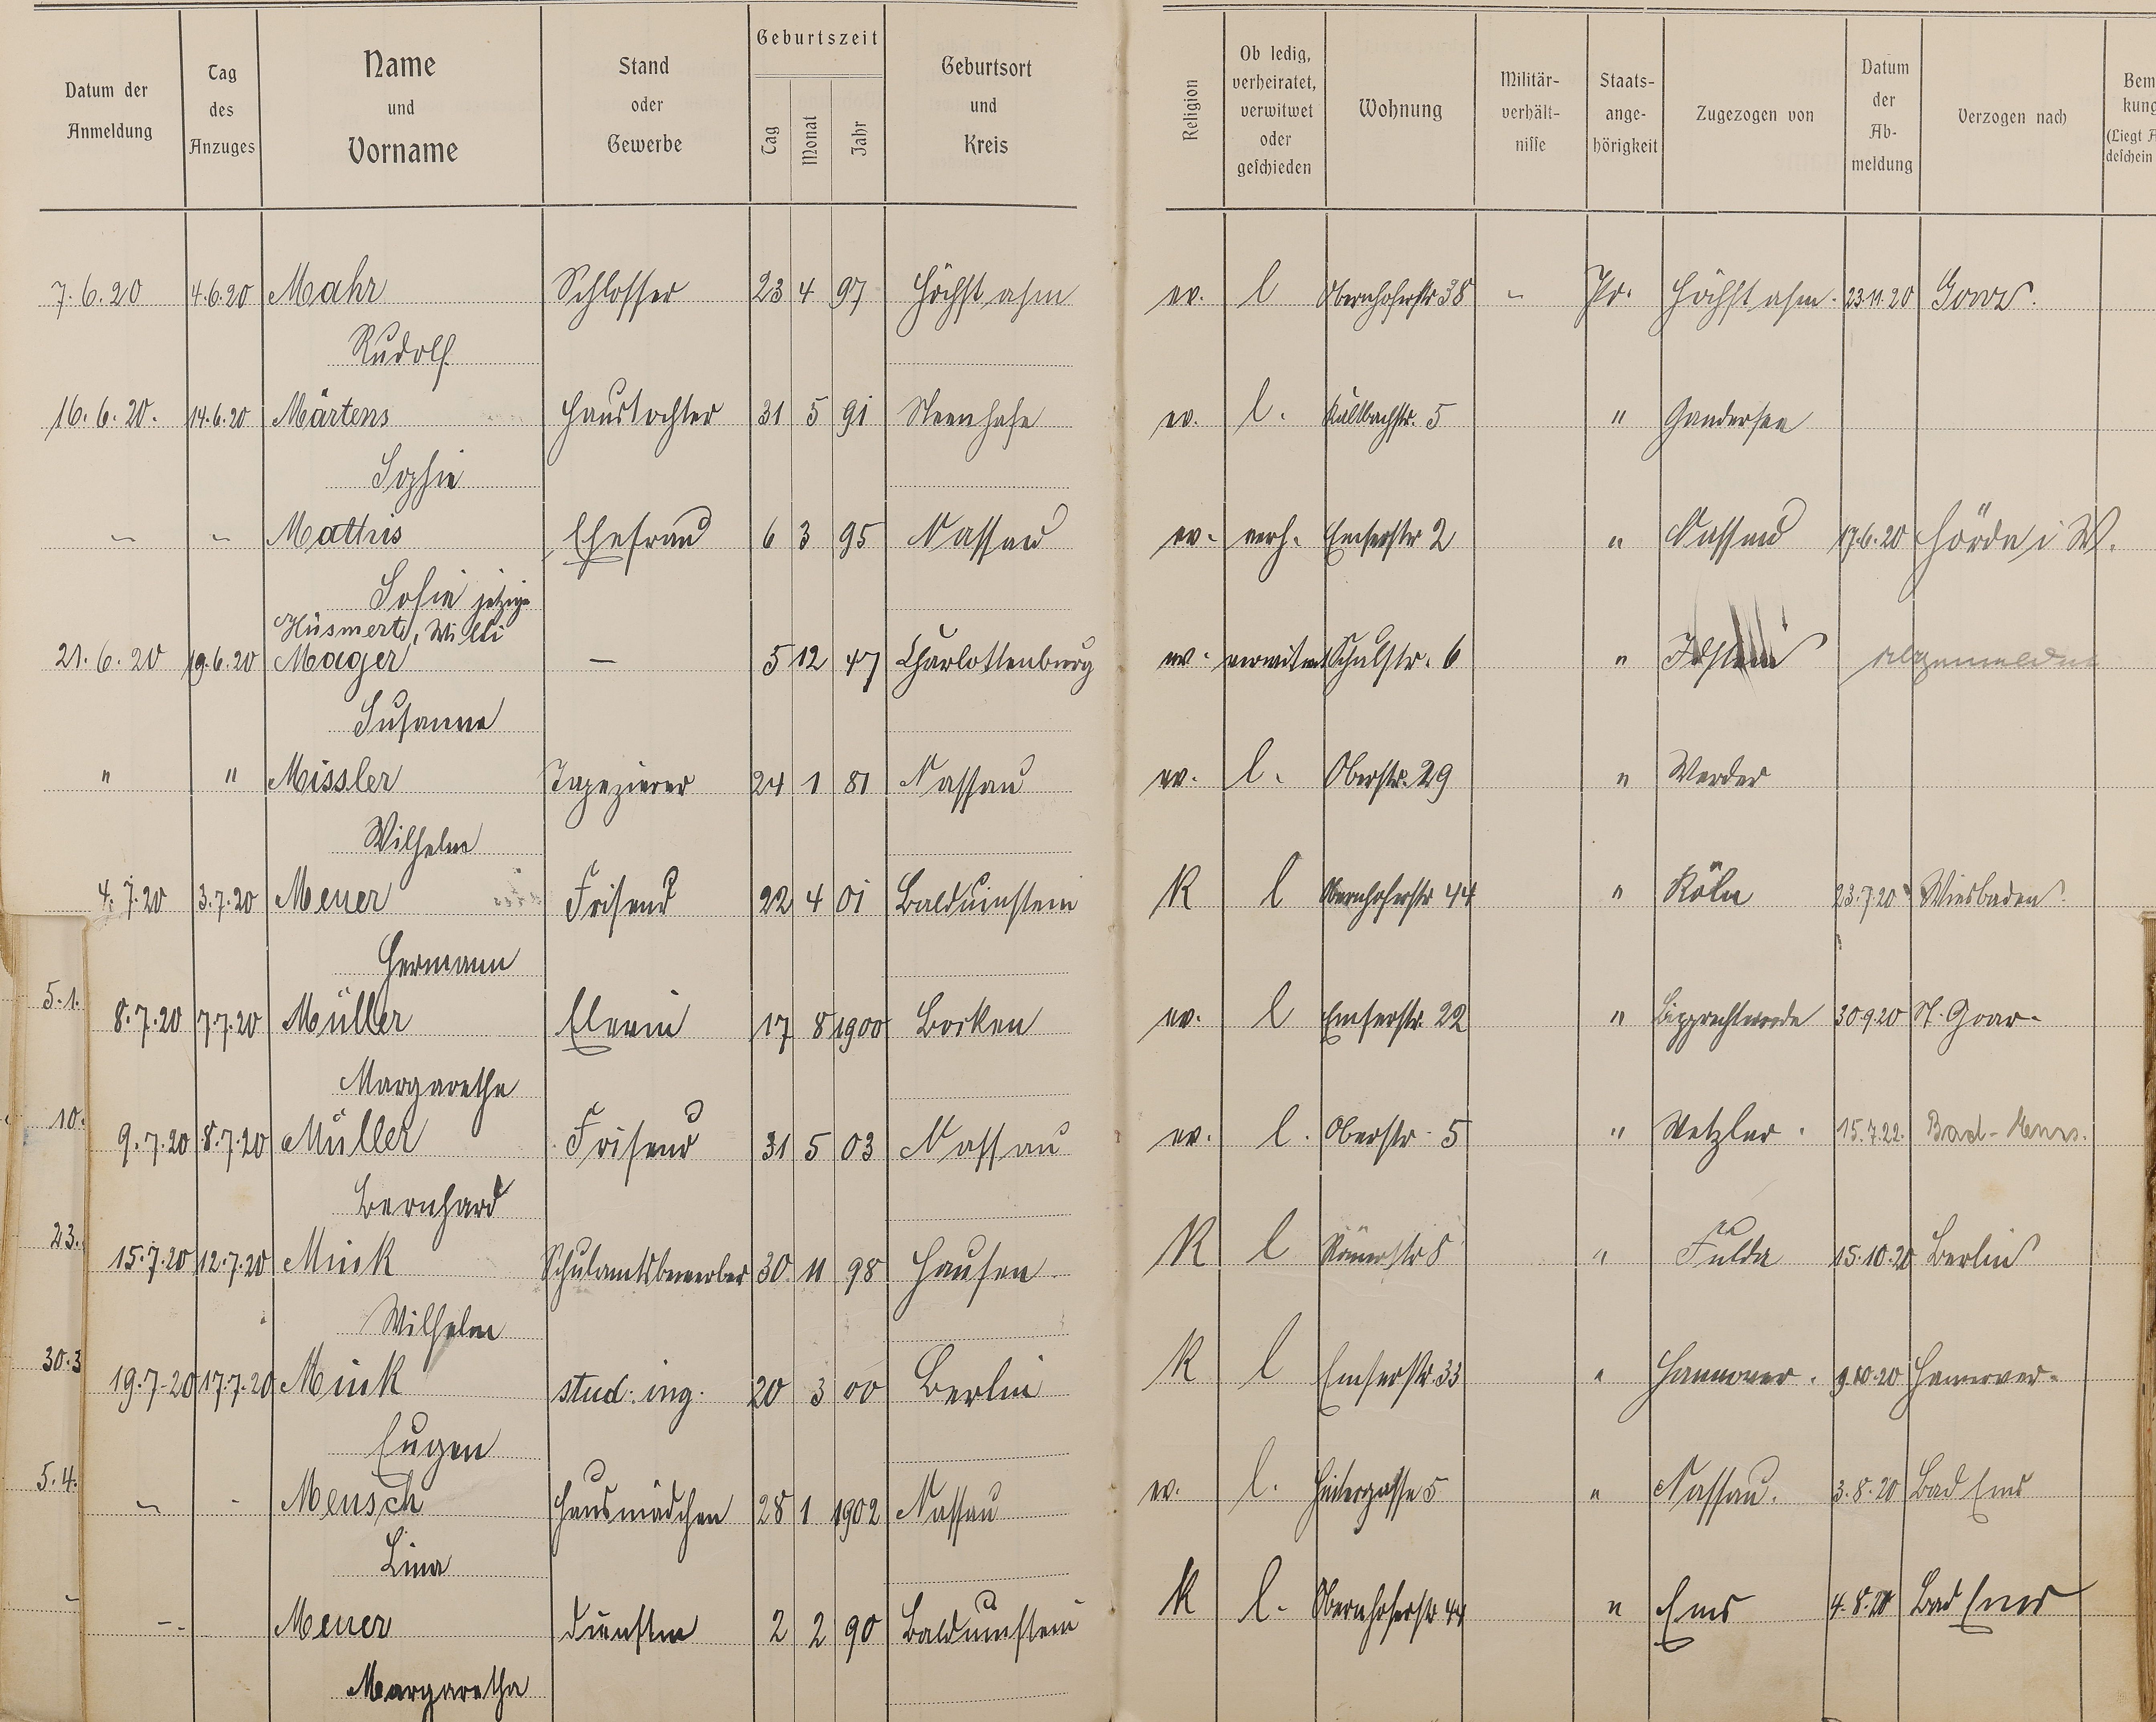 Datum der Anmeldung | Tag des Anzuges | Name und Vorname | Stand oder Gewerbe | Geburtszeit Tag Monat Jahr | Geburtsort und Kreis | Religion | Ob ledig, verheiratet, verwitwet oder geschieden | Wohnung | Militär-verhält-nisse | Staats-ange-hörigkeit | Zugezogen von | Datum der Ab-meldung | Verzogen nach | Bem kung (Liegt A deschein
7.6.20 4.6.20 Mahr Schlosser 23 4 97 Höchst a/m ev. l Obernhoferstr 38 " Pr. Höchst a/m. 23.11.20
Rudolf
16.6.20. 14.6.20 Märtens Haustochter 31 5 91 ev. l. Kaltbachstr. 5 " Gandersee
Sophie
" " Mathis Ehefrau 6 3 95 Nassau ev. verh. Emserstr 2 " Nassau 17.6.20 Hörde i W.
Sofie jetzige
Hüsmert, Willi
21.6.20 19.6.20 Mager — 5 12 47 Charlottenburg ev. verwitwet Schulstr. 6 " Idstein abgemeldet
Susanne
" " Missler Tapezierer 24 1 81 Nassau ev. l. Oberstr. 29 " Werder
Wilhelm
4.7.20 3.7.20 Meuer Friseur 22 4 01 Balduinstein K l Obernhoferstr 44 " Köln 23.7.20 Wiesbaden.
Hermann
5.1.
8.7.20 7.7.20 Müller Elevin 17 8 1900 Borken ev. l Emserstr. 22 " 30.9.20 St. Goar.
Margarethe
10.
9.7.20 8.7.20 Müller Friseur 31 5 03 Nassau ev. l. Oberstr. 5 " Wetzlar. 15.7.22. Bad-Ems.
Bernhard
23.
15.7.20 12.7.20 Mink Schulamtsbewerber 30 11 98 Hausen K l Römerstr 8 " Fulda 15.10.20 Berlin
Wilhelm
30.3
19.7.20 17.7.20 Mink stud. ing. 20 3 00 Berlin K l Emserstr. 33 " Hannover. 9.10.20 Hannover.
Eugen
5.4.
" - Mensch Hausmädchen 28 1 1902 Nassau ev. l. Hintergasse 5 " Nassau. 3.8.20 Bad Ems
Lina
-- Meuer 2 2 90 Balduinstein K l. Obernhoferstr 44 " Ems 4.8.20 Bad Ems
Margaretha